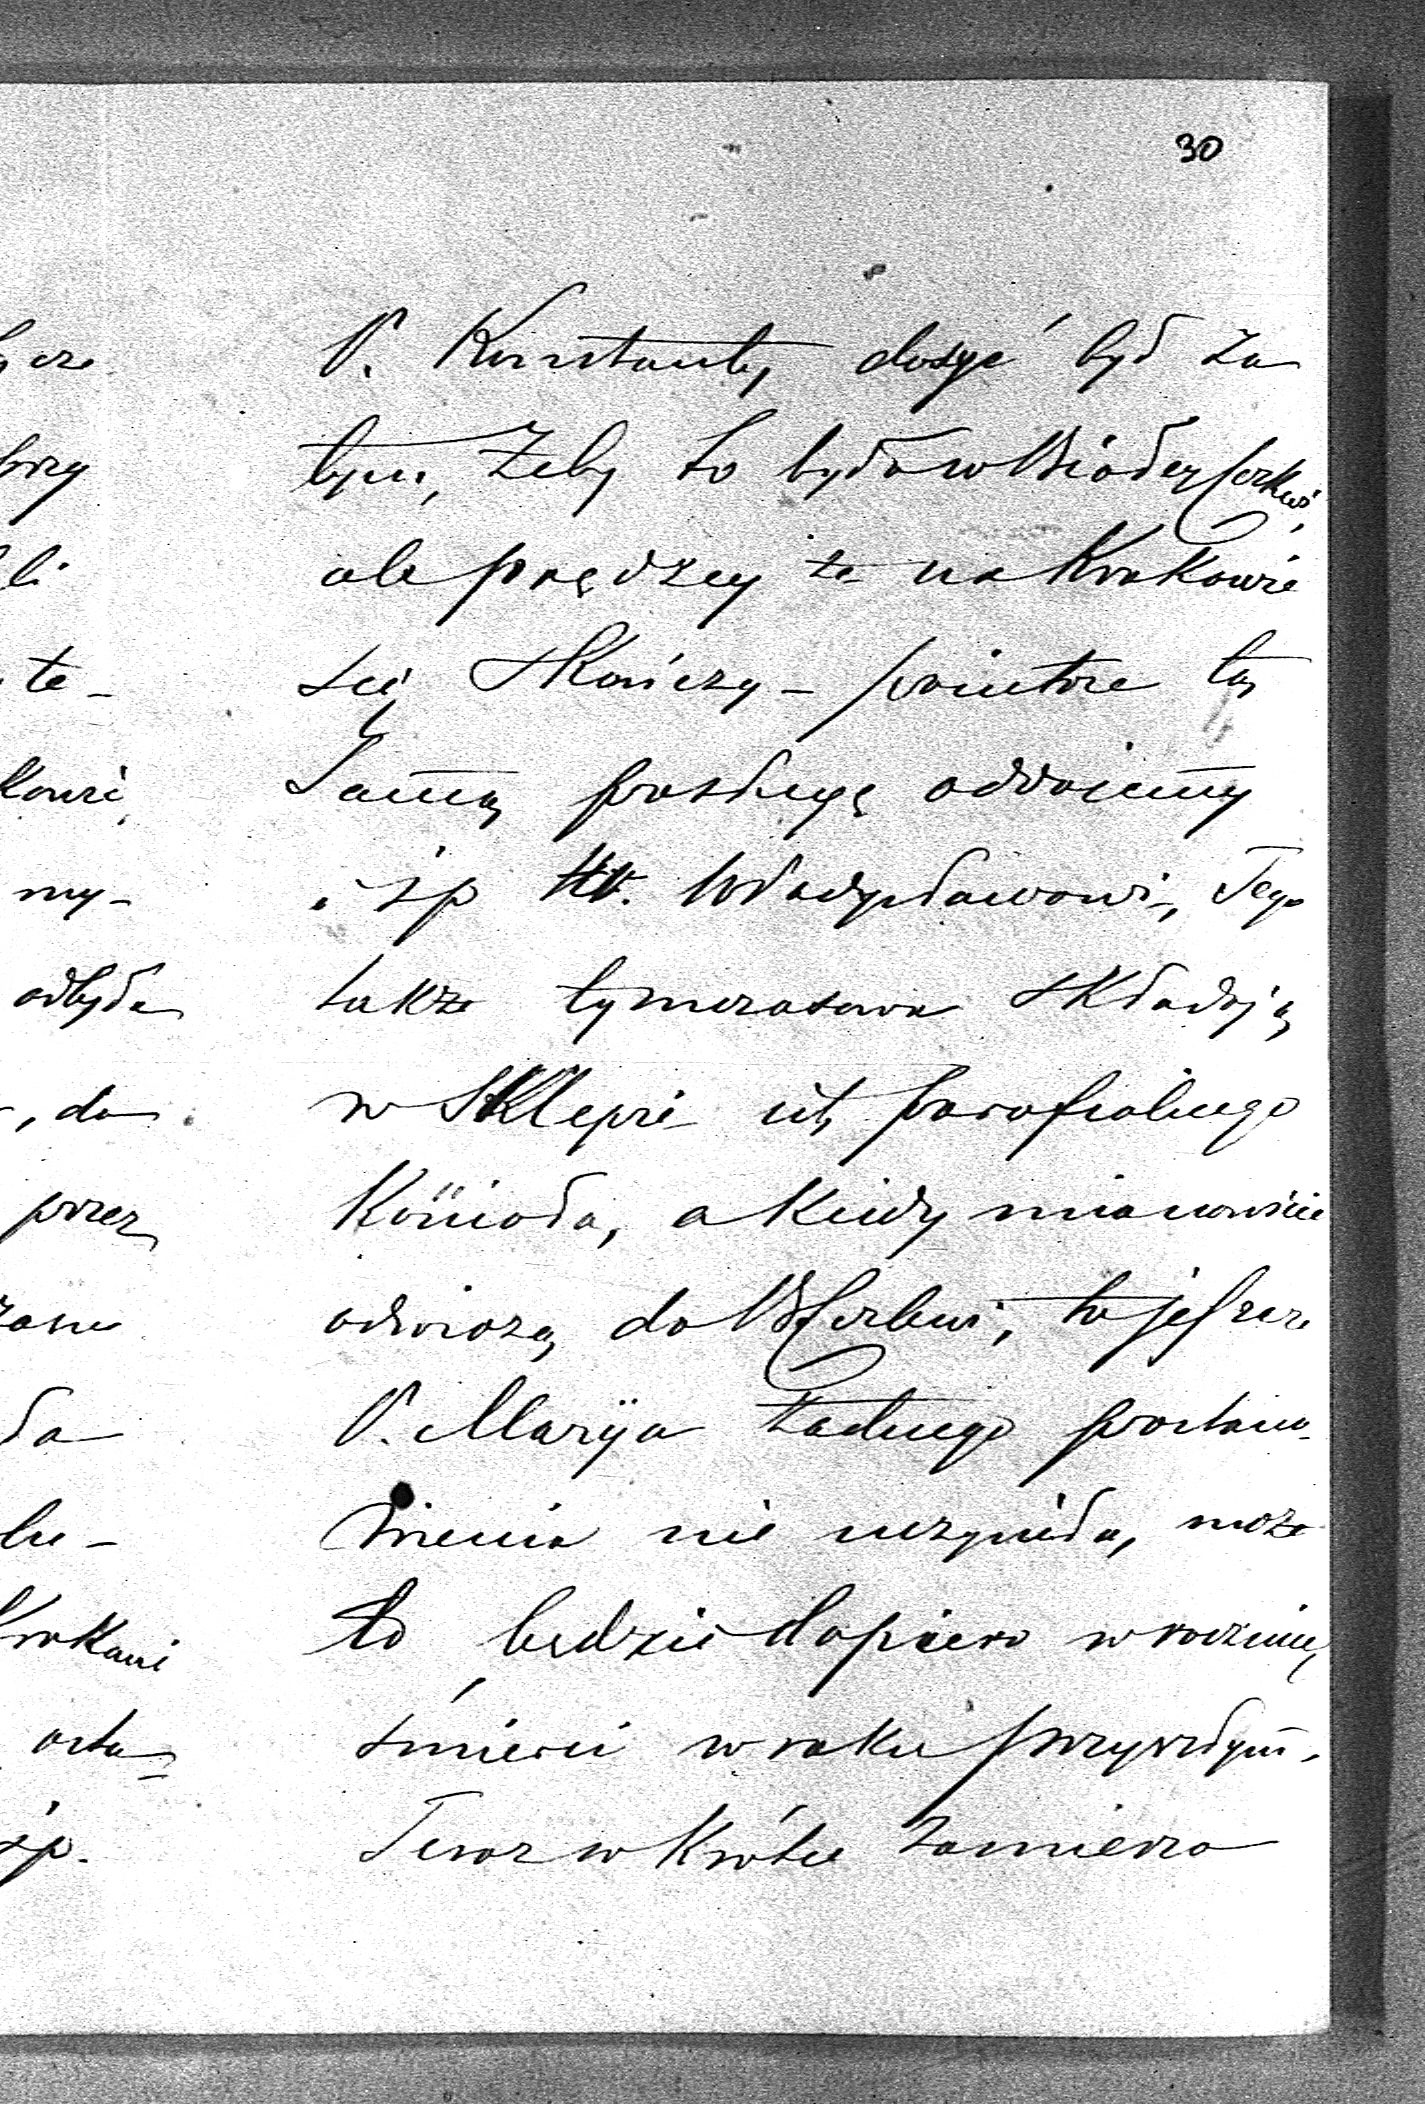 30
P. Konstanty dosyć był za
tym, żeby to było w Białey Cerkwi,
ale prędzey że na Krakowie
się skończy – powtóre tą
Samą posługę oddajemy
i śp Hr. Władysławowi, Tego
także tymczasowo składają
w Sklepie parafialnego
Kościoła, a kiedy mianowicie
odwiozą do B Cerkwi, to jeszcze
P. Maryja żadnego postano-
wienia nie uczyniła, może
to będzie dopiero w rocznicę
śmierci w roku przyszłym.
Teraz wkrótce zamierza
prze
li
te-
my-
odbyła
, do
przez
Krakowi
śp.